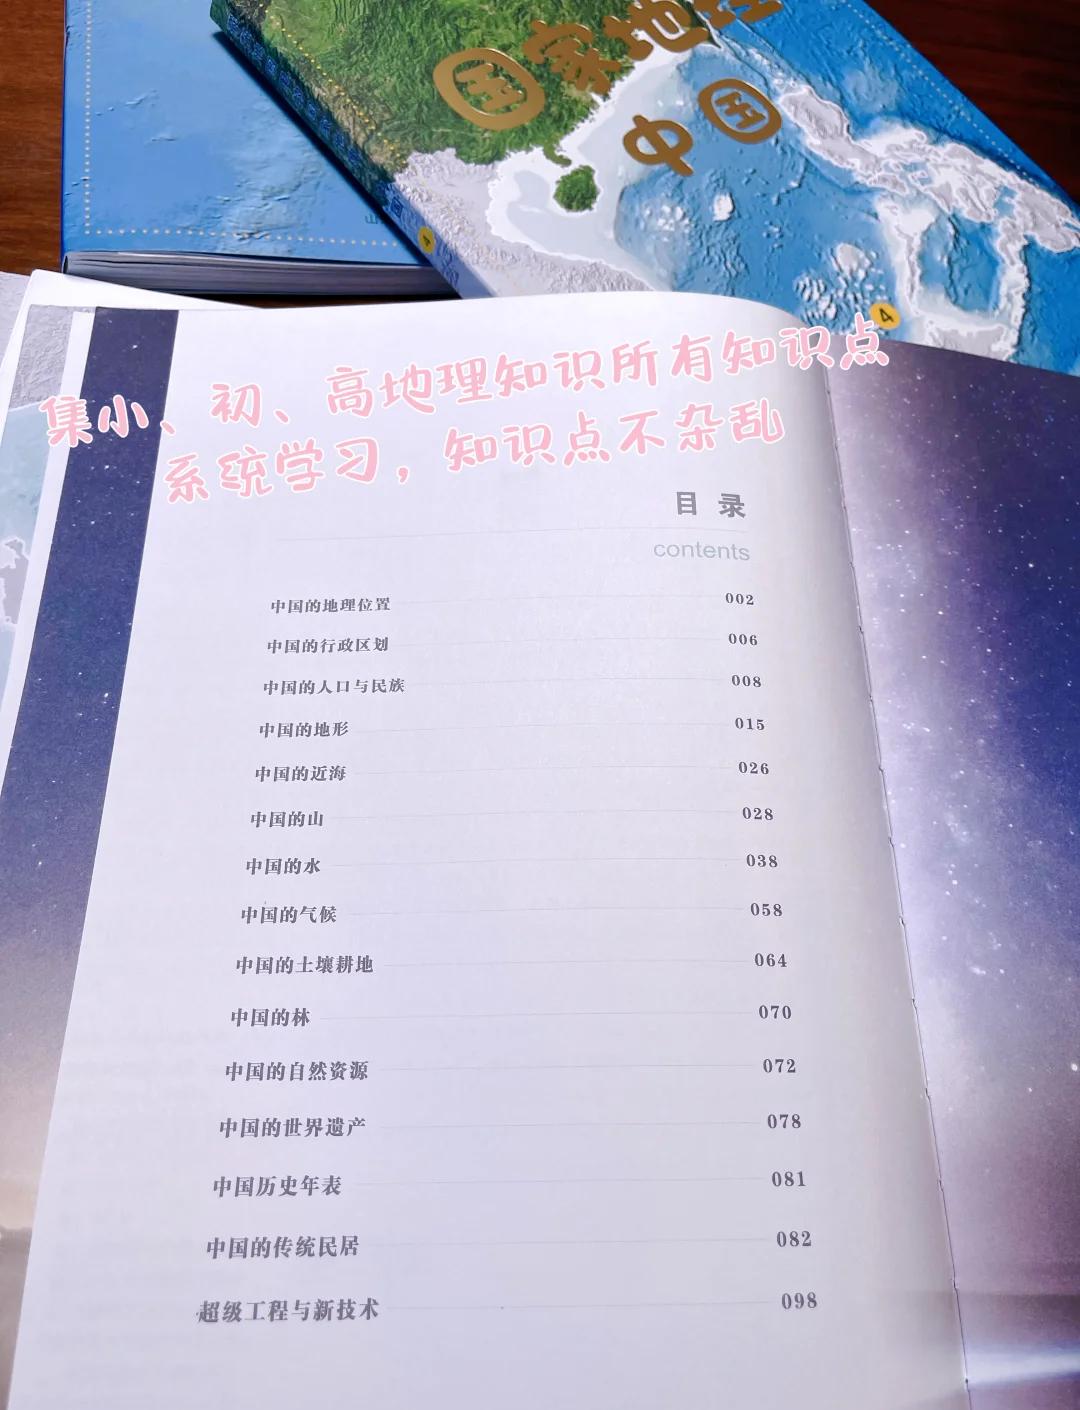 国家地理
中国
4
4
集小、初、高地理知识所有知识点
系统学习，知识点不杂乱
目 录
contents
中国的地理位置 002
中国的行政区划 006
中国的人口与民族 008
中国的地形 015
中国的近海 026
中国的山 028
中国的水 038
中国的气候 058
中国的土壤耕地 064
中国的林 070
中国的自然资源 072
中国的世界遗产 078
中国历史年表 081
中国的传统民居 082
超级工程与新技术 098